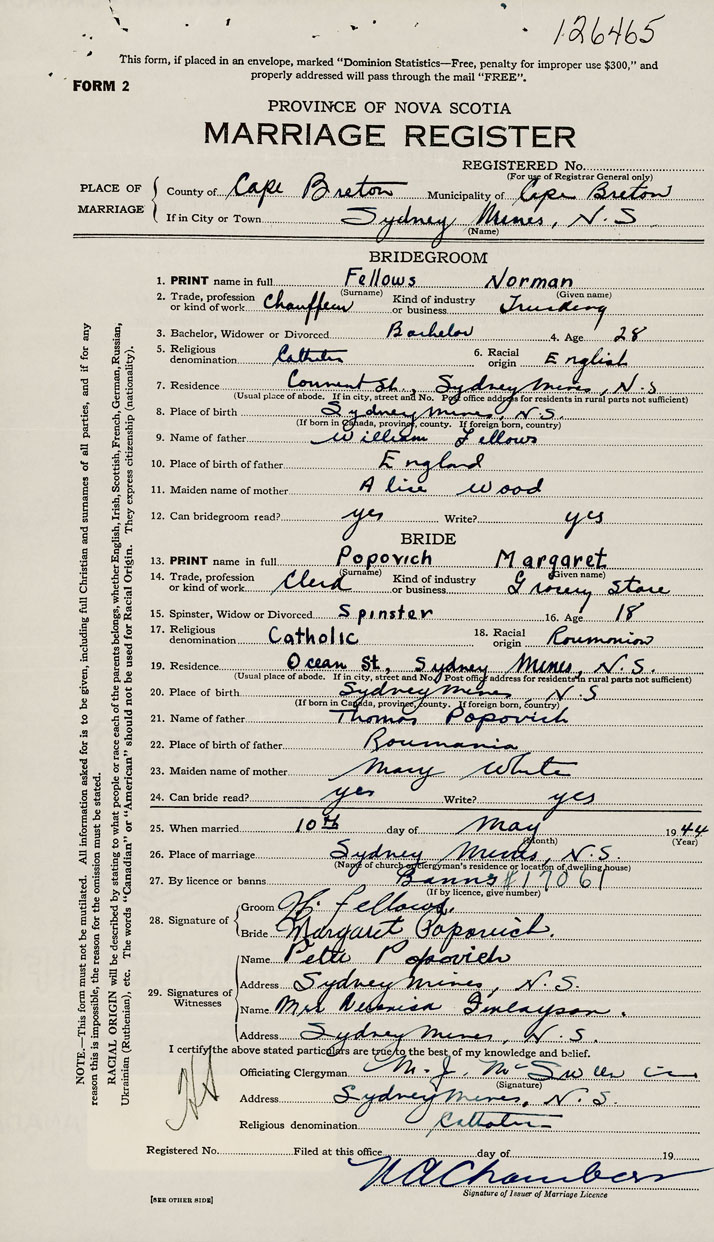 126465
This form, if placed in an envelope, marked "Dominion Statistics—Free, penalty for improper use $300," and
properly addressed will pass through the mail "FREE".
FORM 2
PROVINCE OF NOVA SCOTIA
MARRIAGE REGISTER
REGISTERED No.
(For use of Registrar General only)
PLACE OF MARRIAGE
County of Cape Breton Municipality of Cape Breton
If in City or Town Sydney Mines, N.S
(Name)
BRIDEGROOM
1. PRINT name in full Fellows Norman
(Surname) (Given name)
2. Trade, profession or kind of work Chauffeur Kind of industry or business Trucking
3. Bachelor, Widower or Divorced Bachelor 4. Age 28
5. Religious denomination Catholic 6. Racial origin English
7. Residence Convent St., Sydney Mines, N.S
(Usual place of abode. If in city, street and No. Post office address for residents in rural parts not sufficient)
8. Place of birth Sydney Mines, N.S.
(If born in Canada, province, county. If foreign born, country)
9. Name of father William Fellows
10. Place of birth of father England
11. Maiden name of mother Alice Wood
12. Can bridegroom read? yes Write? yes
BRIDE
13. PRINT name in full Popovich Margaret
(Surname) (Given name)
14. Trade, profession or kind of work Clerk Kind of industry or business Grocery Store
15. Spinster, Widow or Divorced Spinster 16. Age 18
17. Religious denomination Catholic 18. Racial origin Roumanian
19. Residence Ocean St., Sydney Mines, N.S.
(Usual place of abode. If in city, street and No. Post office address for residents in rural parts not sufficient)
20. Place of birth Sydney Mines, N.S
(If born in Canada, province, county. If foreign born, country)
21. Name of father Thomas Popovich
22. Place of birth of father Roumania
23. Maiden name of mother Mary White
24. Can bride read? yes Write? yes
25. When married 10th day of May 1944
(Month) (Year)
26. Place of marriage Sydney Mines, N.S.
(Name of church or clergyman's residence or location of dwelling house)
27. By licence or banns Banns #17061
(If by licence, give number)
28. Signature of
Groom N. Fellows.
Bride Margaret Popovich.
29. Signatures of Witnesses
Name Pete Popovich
Address Sydney Mines, N.S.
Name Mrs Finlayson.
Address Sydney Mines, N.S.
I certify the above stated particulars are true to the best of my knowledge and belief.
Officiating Clergyman M. J.
(Signature)
Address Sydney Mines, N.S.
Religious denomination Catholic
Registered No. Filed at this office day of 19
Chambers
Signature of Issuer of Marriage Licence
[SEE OTHER SIDE]
NOTE.—This form must not be mutilated. All information asked for is to be given, including full Christian and surnames of all parties, and if for any
reason this is impossible, the reason for the omission must be stated.
RACIAL ORIGIN will be described by stating to what people or race each of the parents belongs, whether English, Irish, Scottish, French, German, Russian,
Ukrainian (Ruthenian), etc. The words "Canadian" or "American" should not be used for Racial Origin. They express citizenship (nationality).